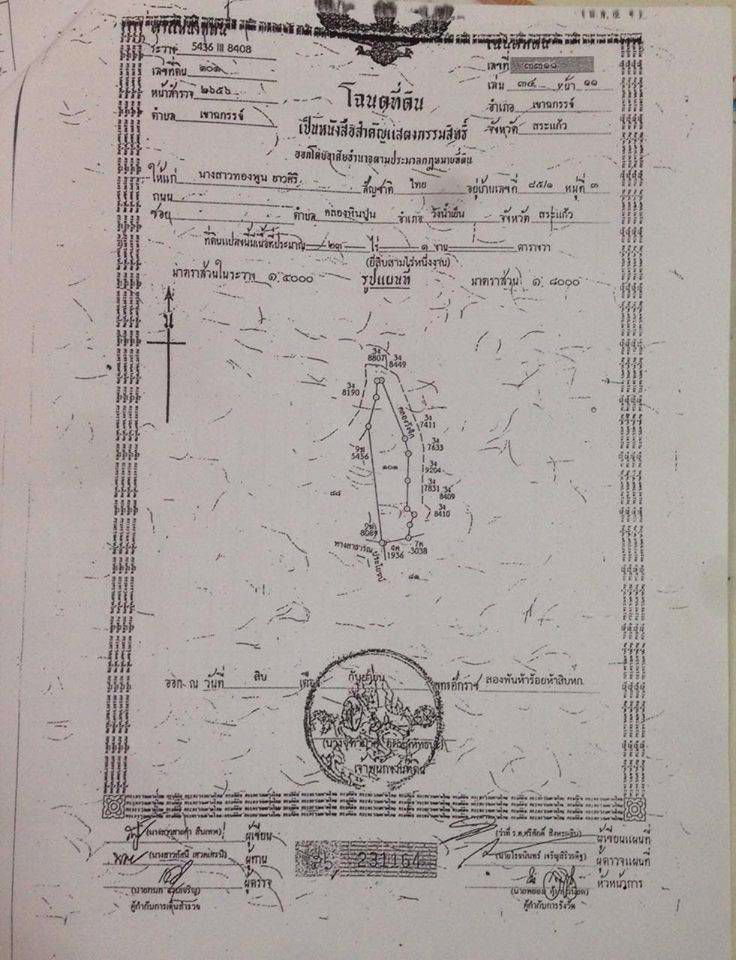 (น.ส. ๔ จ.)
ตำแหน่งที่ดิน
ระวาง 5436 III 8408
เลขที่ดิน ๑๐๑
หน้าสำรวจ ๒๖๕๖
ตำบล เขาฉกรรจ์
โฉนดที่ดิน
เลขที่ ๓๓๑๑
เล่ม ๓๔ หน้า ๑๑
อำเภอ เขาฉกรรจ์
จังหวัด สระแก้ว
โฉนดที่ดิน
เป็นหนังสือสำคัญแสดงกรรมสิทธิ์
ออกโดยอาศัยอำนาจตามประมวลกฎหมายที่ดิน
ให้แก่ นางสาวทองพูน ยาวศิริ สัญชาติ ไทย อยู่บ้านเลขที่ ๘๕/๑ หมู่ที่ ๓
ถนน
ซอย ตำบล คลองหินปูน อำเภอ วังน้ำเย็น จังหวัด สระแก้ว
ที่ดินแปลงนี้มีเนื้อที่ประมาณ ๒๓ ไร่ ๑ งาน ตารางวา
(ยี่สิบสามไร่หนึ่งงาน)
มาตราส่วนในระวาง ๑:๕๐๐๐ รูปแผนที่ มาตราส่วน ๑:๘๐๐๐
น
3ง 8807
3ง 8449
3ง 8190
3ง 7411
3ง 7633
5456
๑๐๑
3ง 9204
3ง 7831
3ง 8409
3ง 8410
๘๘
8089
ทางสาธารณประโยชน์
1936
7ค 3038
๘๑
ออก ณ วันที่ สิบ เดือน กันยายน พุทธศักราช สองพันห้าร้อยห้าสิบหก
เจ้าพนักงานที่ดิน
ผู้เขียน
ผู้ทาน
ผู้ตรวจ
ผู้กำกับการเดินสำรวจ
231164
ผู้เขียนแผนที่
ผู้ตรวจแผนที่
หัวหน้าการ
ผู้กำกับการรังวัด